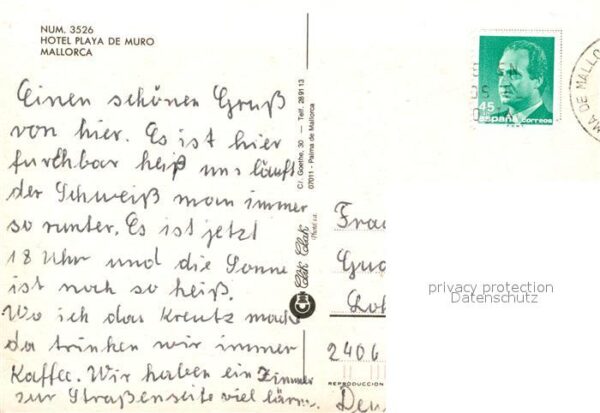 NUM. 3526
HOTEL PLAYA DE MURO
MALLORCA
Einen schönen Gruß
von hier. Es ist hier
furchbar heiß uns läuft
der Schweiß man immer
so runter. Es ist jetzt
18 Uhr und die Sonne
ist noch so heiß.
Wo ich das Kreutz mache
da trinken wir immer
Kaffee. Wir haben ein Zimmer
zur Straßenseite viel lärm.
C/. Goethe, 30 — Telf. 289113
07011 - Palma de Mallorca
Clik Clak
45
españa correos
MA DE MALLO
Frau
privacy protection
Datenschutz
2406
REPRODUCCION